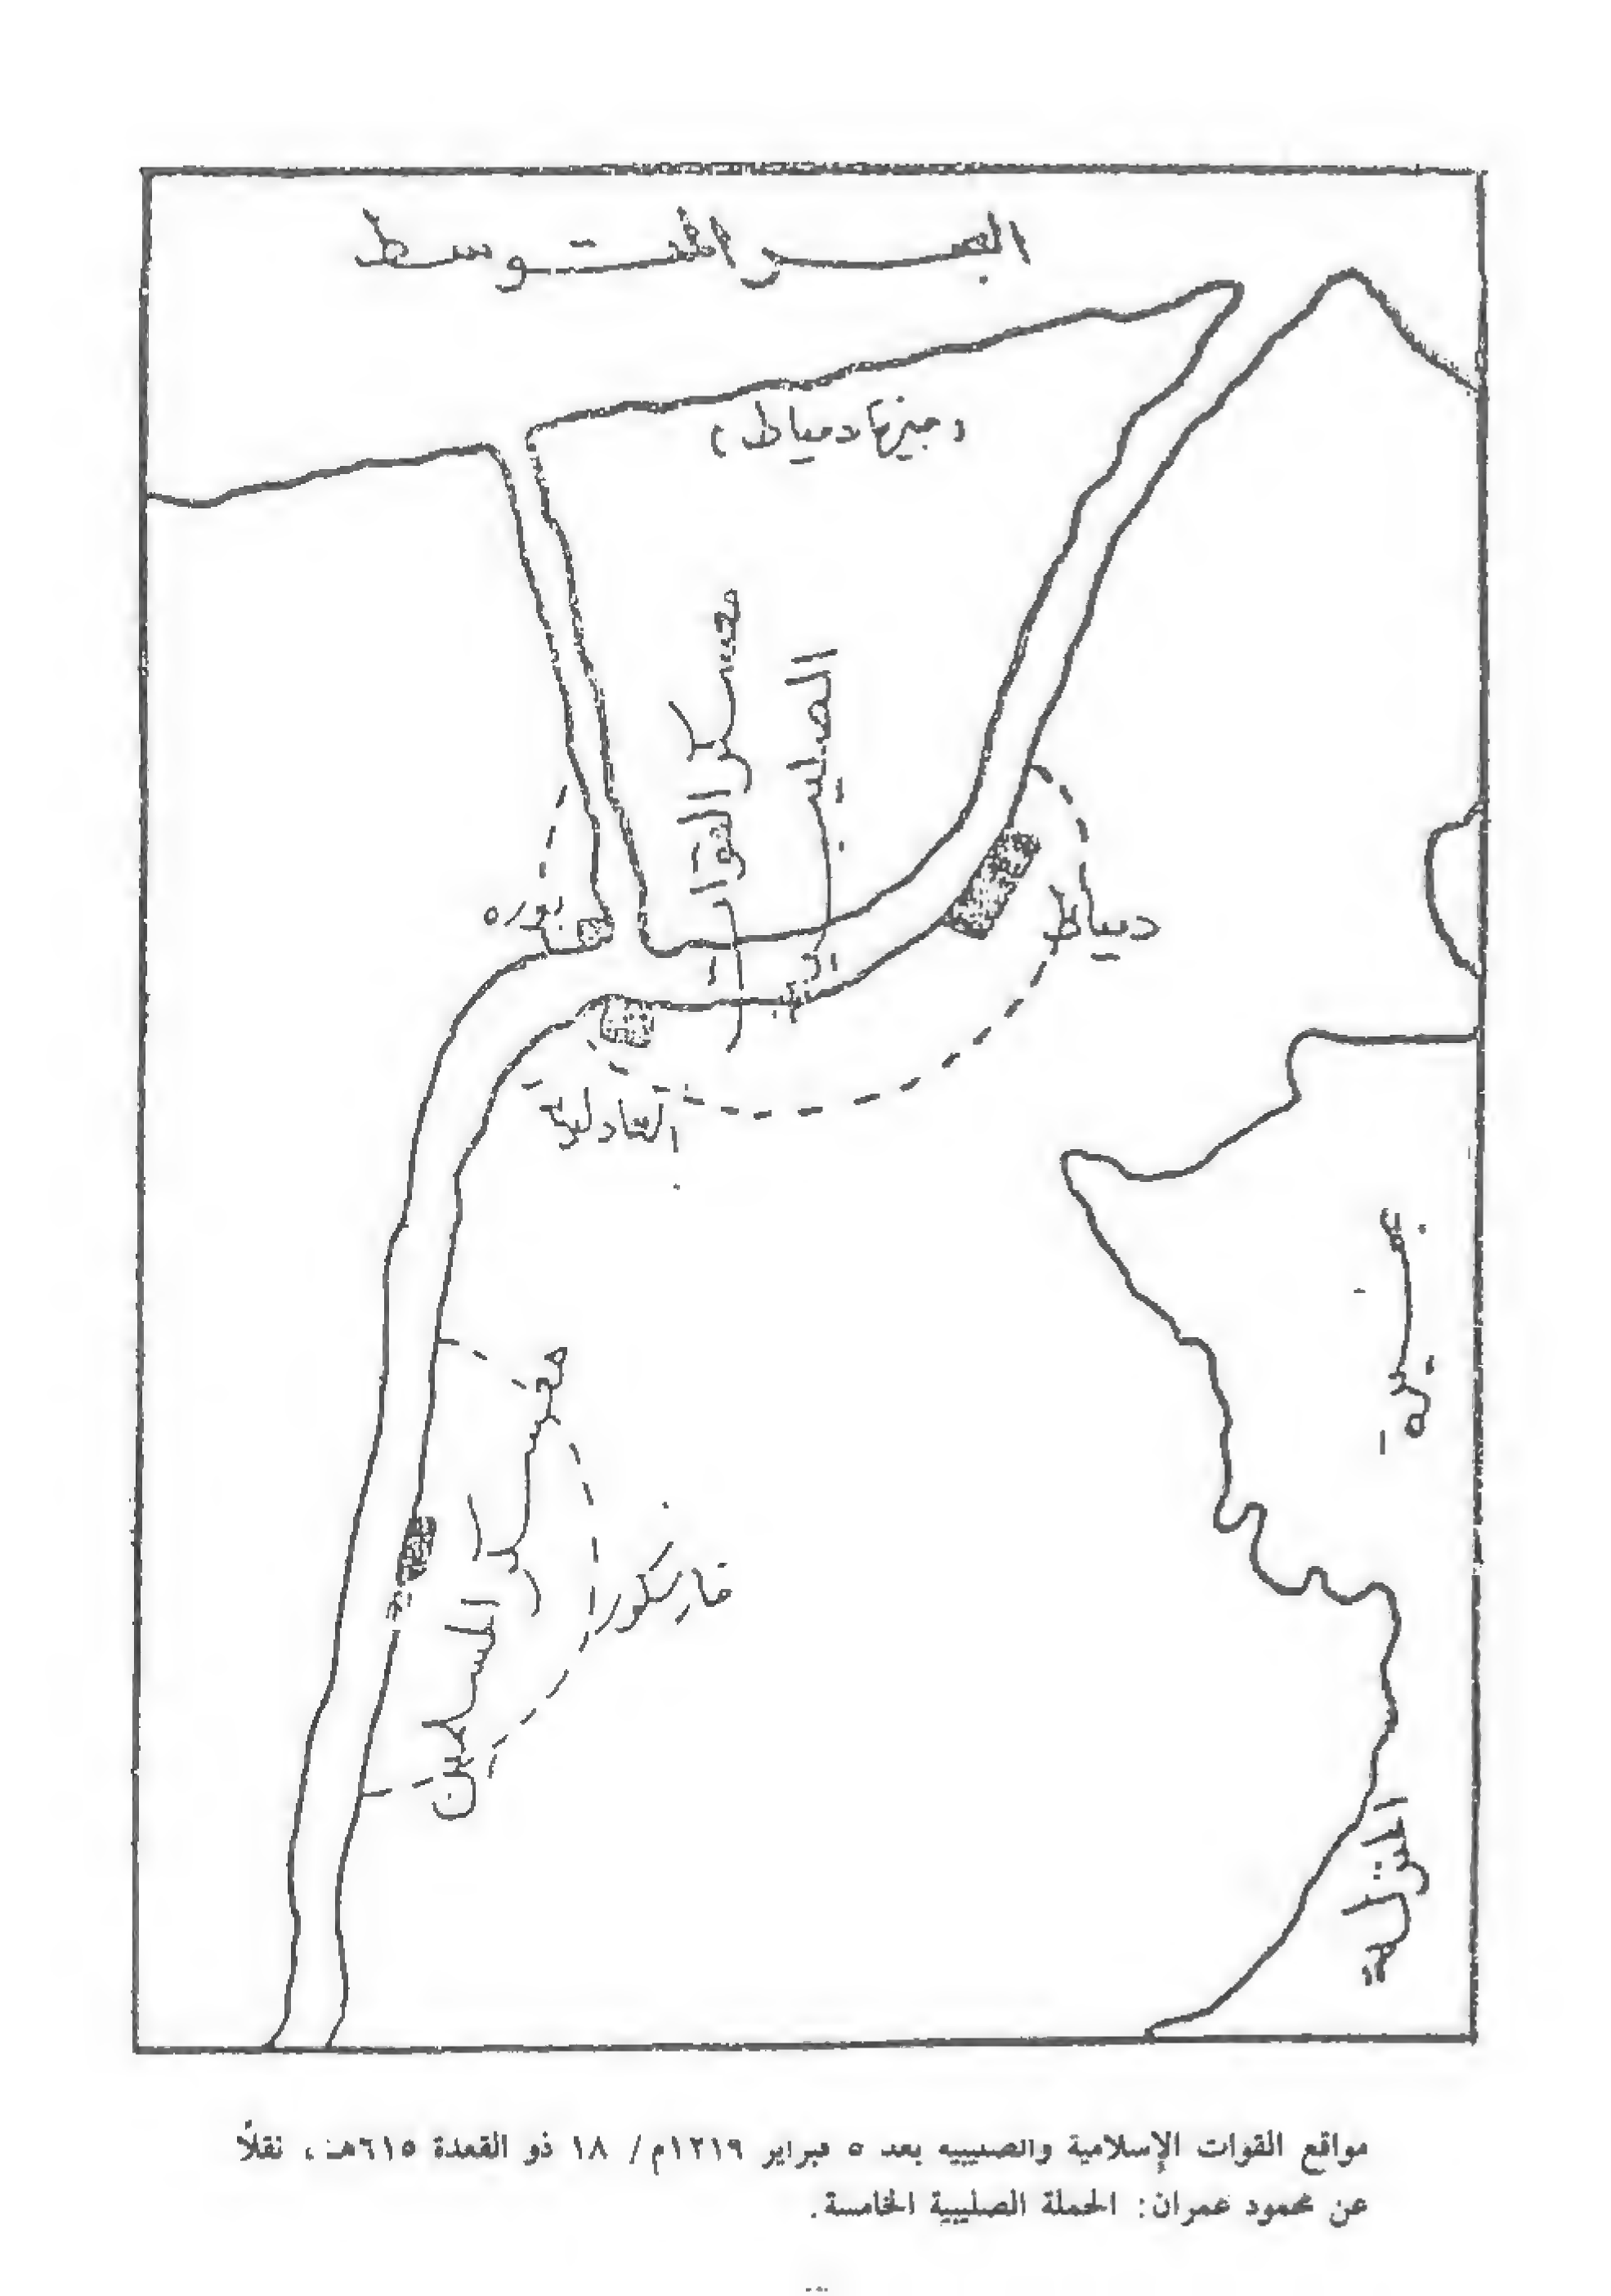 البحر المتوسط
(جيزة دمياط)
معسكر القوات
الصليبية
بوره
دمياط
العادلية
بحيرة
المنزلة
معسكر المسلمين
فارسكور
مواقع القوات الإسلامية والصليبيه بعد ٥ فبراير ١٢١٩م/ ١٨ ذو القعدة ٦١٥هـ، نقلًا
عن محمود عمران: الحملة الصليبية الخامسة.